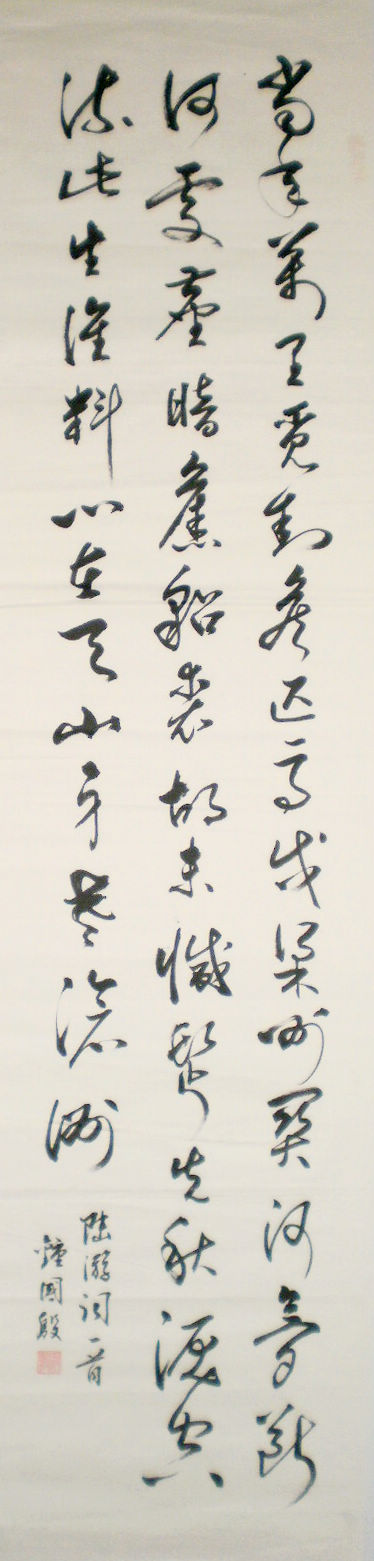 當年萬里覓封侯匹馬戍梁州關河夢斷
何處塵暗舊貂裘胡未滅鬢先秋淚空
流此生誰料心在天山身老滄洲
陸游詞一首
鐘國殷